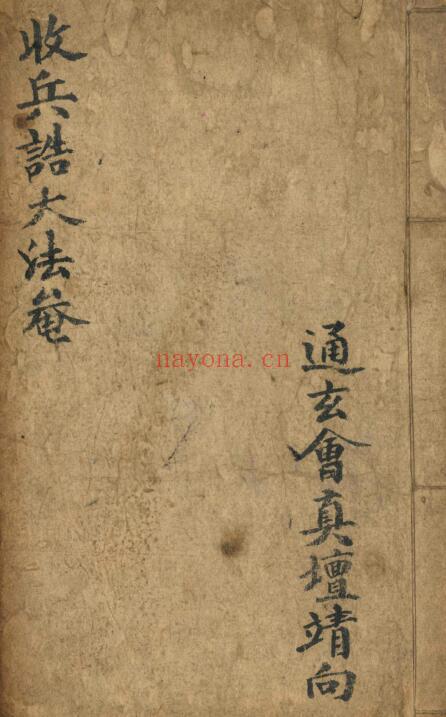 通玄會真壇靖向
收兵誥大法菴
nayona.cn